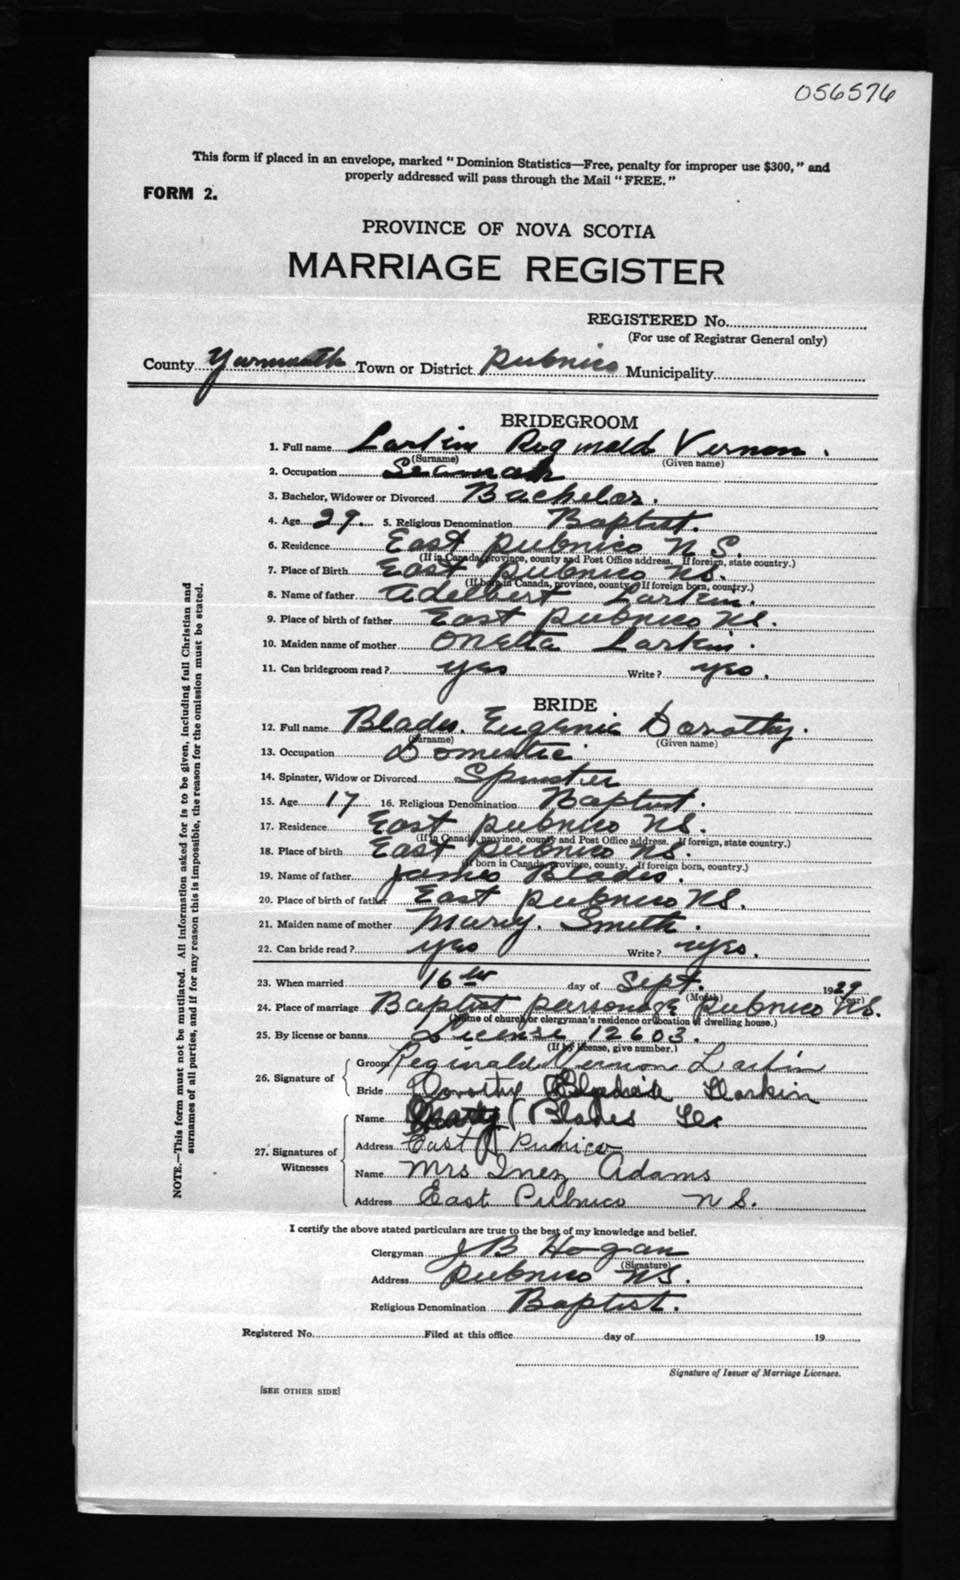 056576
This form if placed in an envelope, marked "Dominion Statistics—Free, penalty for improper use $300," and
properly addressed will pass through the Mail "FREE."
FORM 2.
PROVINCE OF NOVA SCOTIA
MARRIAGE REGISTER
REGISTERED No.
(For use of Registrar General only)
County Yarmouth Town or District Pubnico Municipality
BRIDEGROOM
1. Full name Larkin Reginald Vernon.
(Surname) (Given name)
2. Occupation Seaman
3. Bachelor, Widower or Divorced Bachelor.
4. Age 29. 5. Religious Denomination Baptist.
6. Residence East Pubnico N S.
(If in Canada, province, county and Post Office address. If foreign, state country.)
7. Place of Birth East Pubnico NS.
(If born in Canada, province, county. If foreign born, country.)
8. Name of father Adelbert Larkin.
9. Place of birth of father East Pubnico NS.
10. Maiden name of mother Oneta Larkin.
11. Can bridegroom read? yes Write? yes.
BRIDE
12. Full name Blades. Eugenie Dorothy.
(Surname) (Given name)
13. Occupation Domestic
14. Spinster, Widow or Divorced Spinster
15. Age 17 16. Religious Denomination Baptist.
17. Residence East Pubnico NS.
(If in Canada, province, county and Post Office address. If foreign, state country.)
18. Place of birth East Pubnico NS.
(If born in Canada, province, county. If foreign born, country.)
19. Name of father James Blades.
20. Place of birth of father East Pubnico NS.
21. Maiden name of mother Mary. Smith.
22. Can bride read? yes Write? yes.
23. When married 16th day of Sept. 1929
(Month) (Year)
24. Place of marriage Baptist parsonage Pubnico NS.
(Name of church or clergyman's residence or location of dwelling house.)
25. By license or banns License 12603.
(If by license, give number.)
26. Signature of
Groom Reginald Vernon Larkin
Bride Dorothy Larkin
27. Signatures of Witnesses
Name Blades
Address East Pubnico
Name Mrs Inez Adams
Address East Pubnico N S.
I certify the above stated particulars are true to the best of my knowledge and belief.
Clergyman J B Hogan
(Signature)
Address Pubnico NS.
Religious Denomination Baptist.
Registered No. Filed at this office day of 19
Signature of Issuer of Marriage Licenses.
[SEE OTHER SIDE]
NOTE.—This form must not be mutilated. All information asked for is to be given, including full Christian and
surnames of all parties, and if for any reason this is impossible, the reason for the omission must be stated.